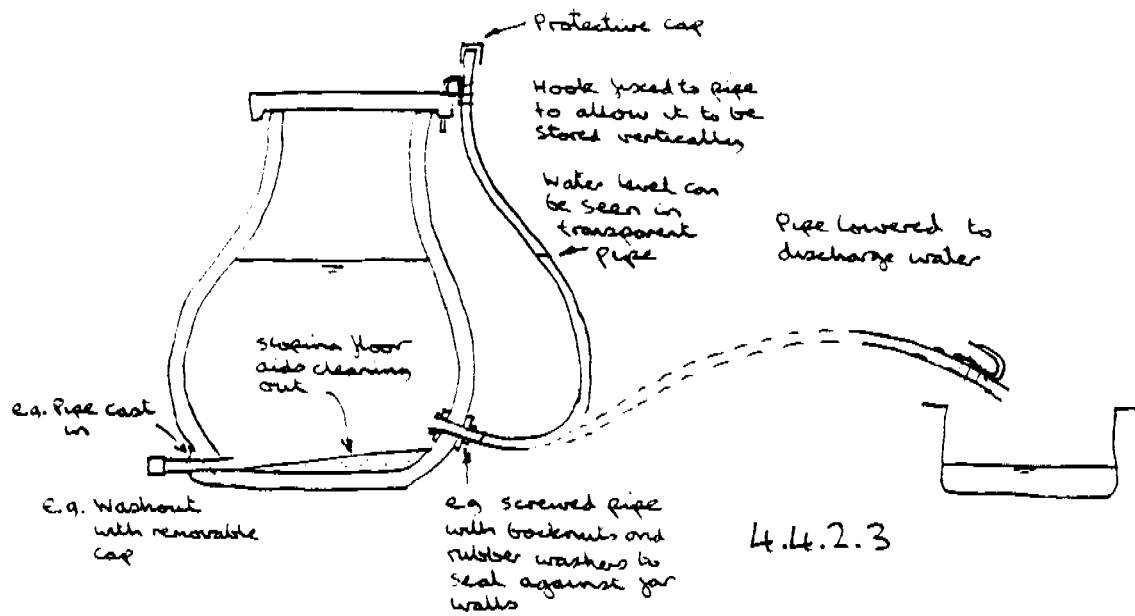 Protective cap
Hook fixed to pipe
to allow it to be
stored vertically
Water level can
be seen in
transparent
pipe
Pipe lowered to
discharge water
sloping floor
aids cleaning
out
e.g. Pipe cast
in
e.g. Washout
with removable
cap
e.g. screwed pipe
with backnuts and
rubber washers to
seal against jar
walls
4.4.2.3